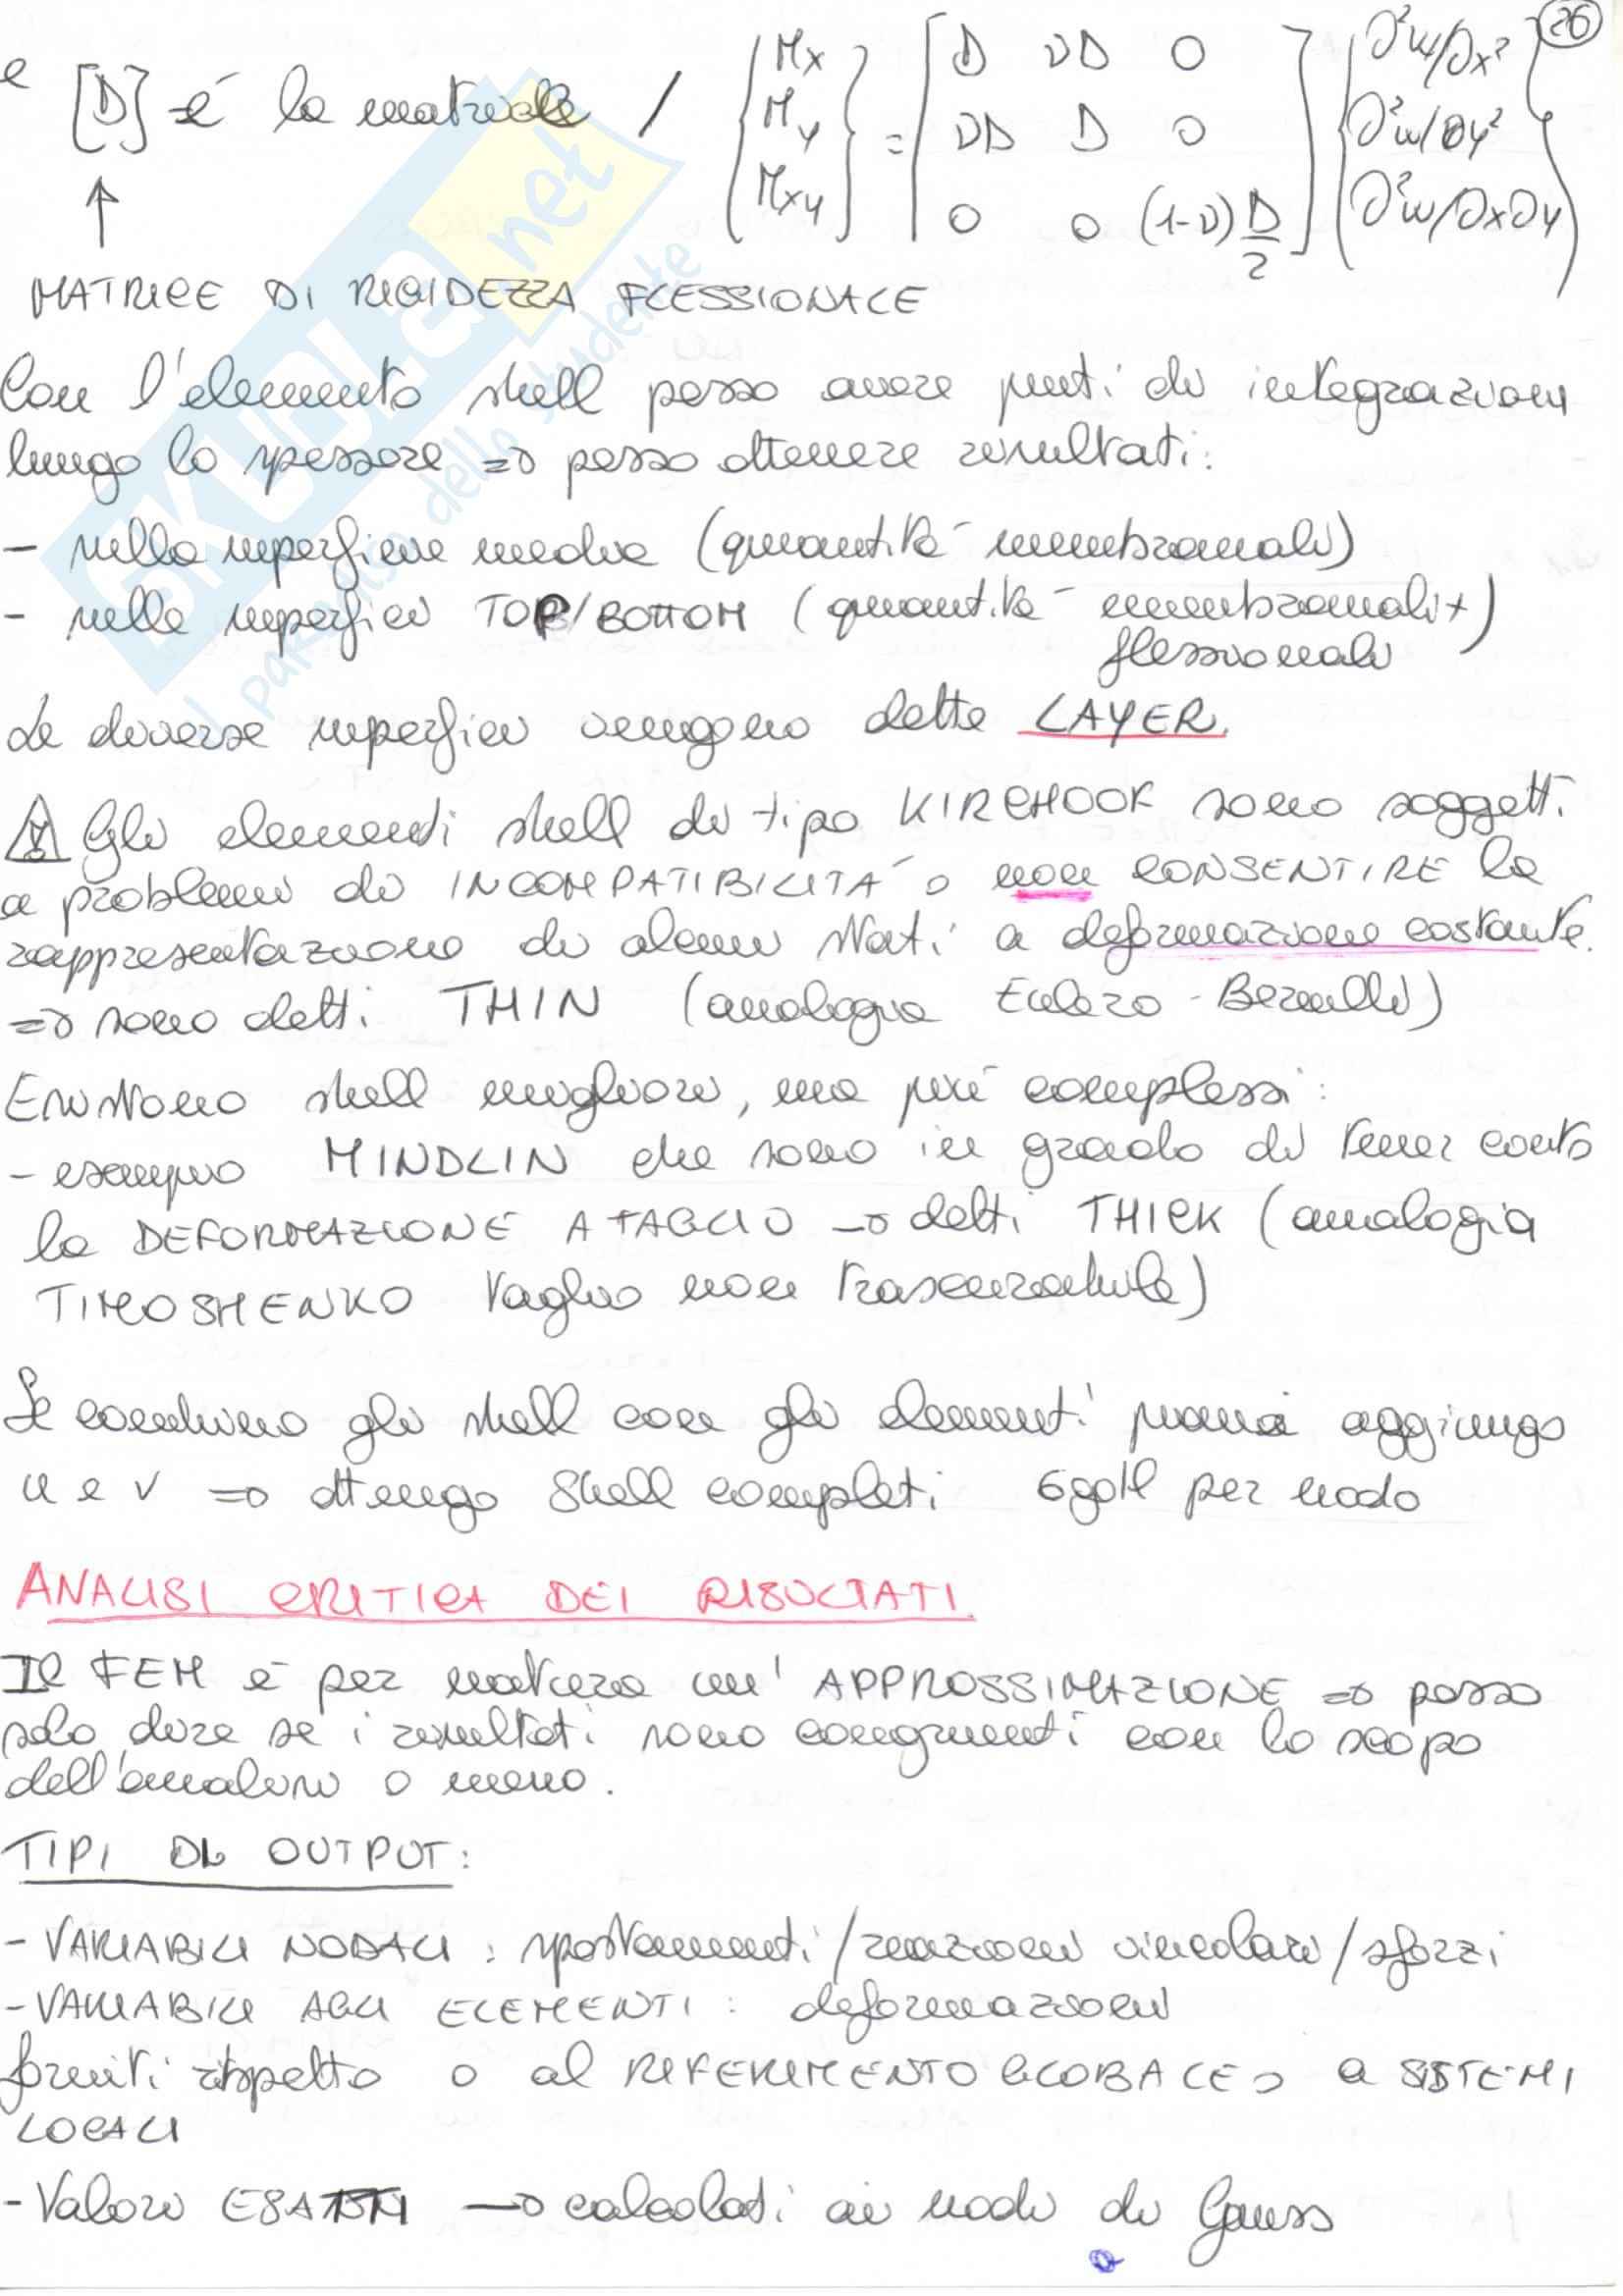 26
e [D] è la matrice / {Mx My Mxy} = [D νD 0; νD D 0; 0 0 (1-ν)D/2] {∂²w/∂x² ∂²w/∂y² ∂²w/∂x∂y}
↑
MATRICE DI RIGIDEZZA FLESSIONALE
Con l'elemento shell posso avere punti di integrazioni
lungo lo spessore => posso ottenere risultati:
- nella superficie media (quantità membranali)
- nelle superfici TOP/BOTTOM (quantità membranali+)
flessionali
Le diverse superfici vengono dette LAYER.
Gli elementi shell di tipo KIRCHOOF sono soggetti
a problemi di INCOMPATIBILITÀ o non CONSENTIRE la
rappresentazione di alcuni stati a deformazione costante.
=> sono detti THIN (analogia Eulero-Bernulli)
Esistono shell migliori, ma più complessi:
- esempio MINDLIN che sono in grado di tener conto
la DEFORMAZIONE A TAGLIO -> detti THICK (analogia
TIMOSHENKO taglio non trascurabile)
Se combino gli shell con gli elementi piani aggiungo
u e v => ottengo Shell completi 6gdl per nodo
ANALISI CRITICA DEI RISULTATI.
Il FEM è per natura un' APPROSSIMAZIONE => posso
solo dire se i risultati sono congruenti con lo scopo
dell'analisi o meno.
TIPI DI OUTPUT:
- VARIABILI NODALI: spostamenti/reazioni vincolari/sforzi
- VARIABILI AGLI ELEMENTI: deformazioni
forniti rispetto o al RIFERIMENTO GLOBALE o a SISTEMI
LOCALI
- Valori ESATTI -> calcolati ai nodi di Gauss
SKUOLA.net
il paradiso dello studente